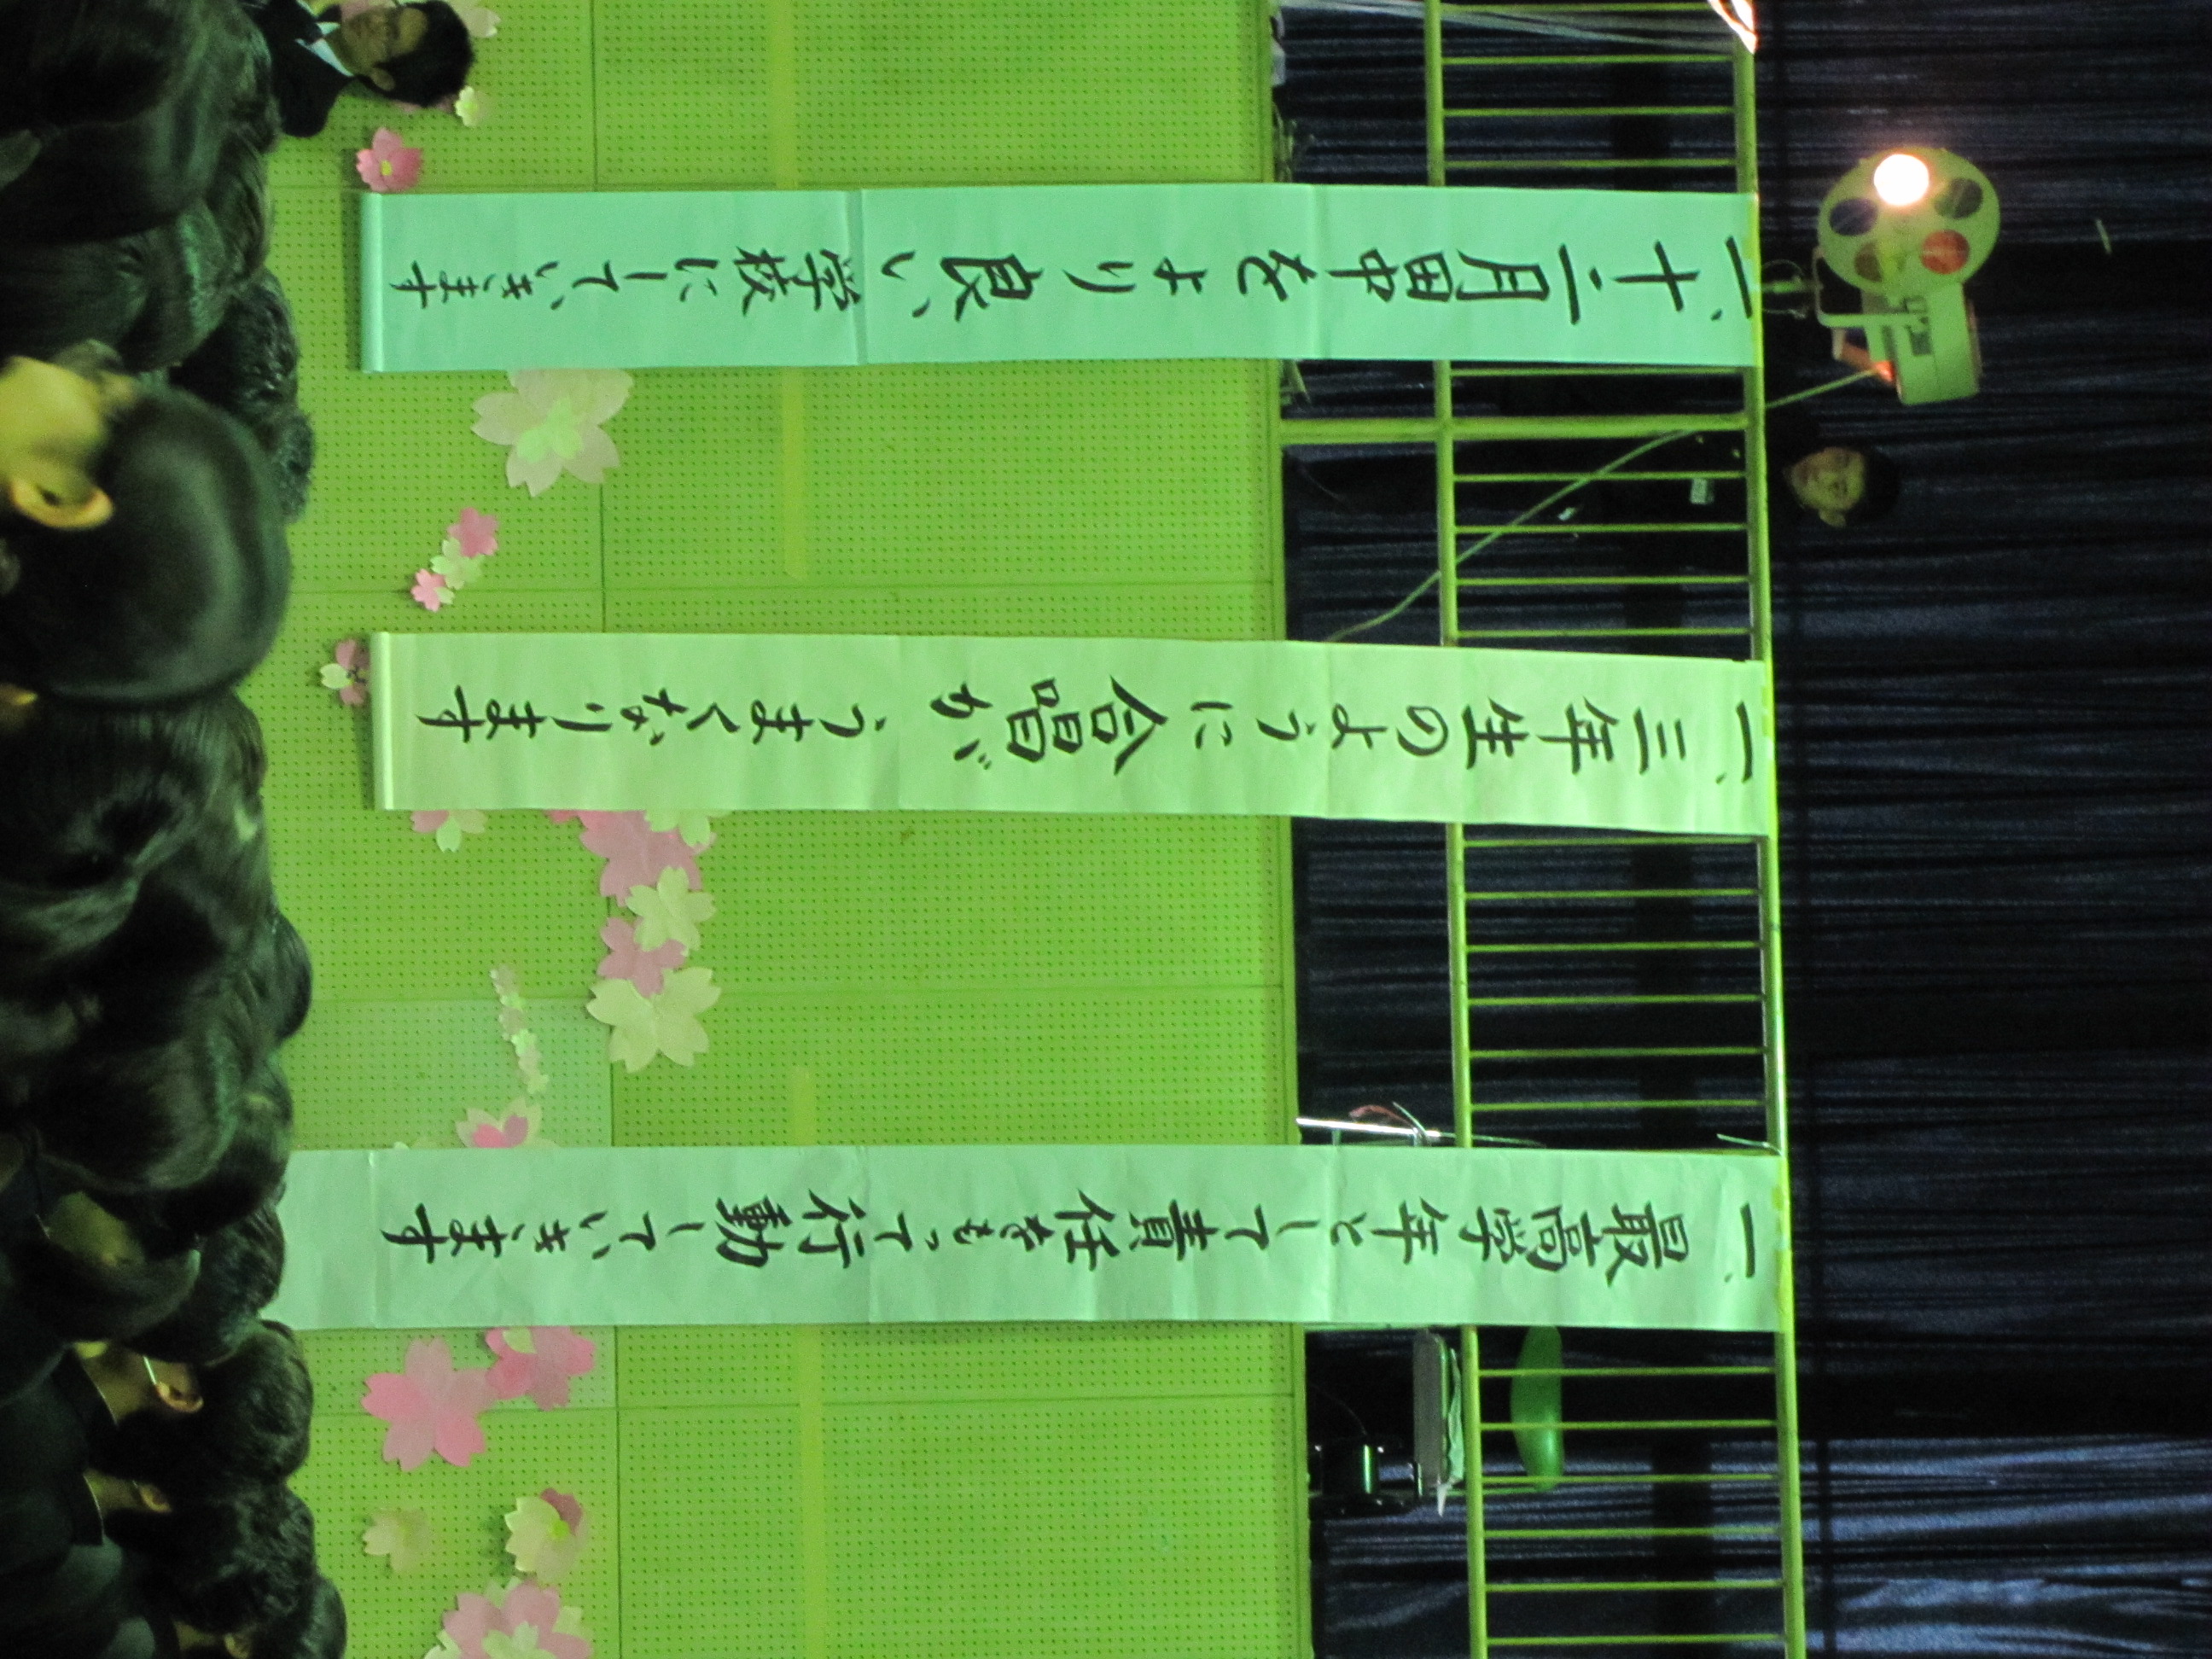 一、最高学年として責任をもって行動していきます
一、三年生のように合唱がうまくなります
一、十二月田中をより良い学校にしていきます